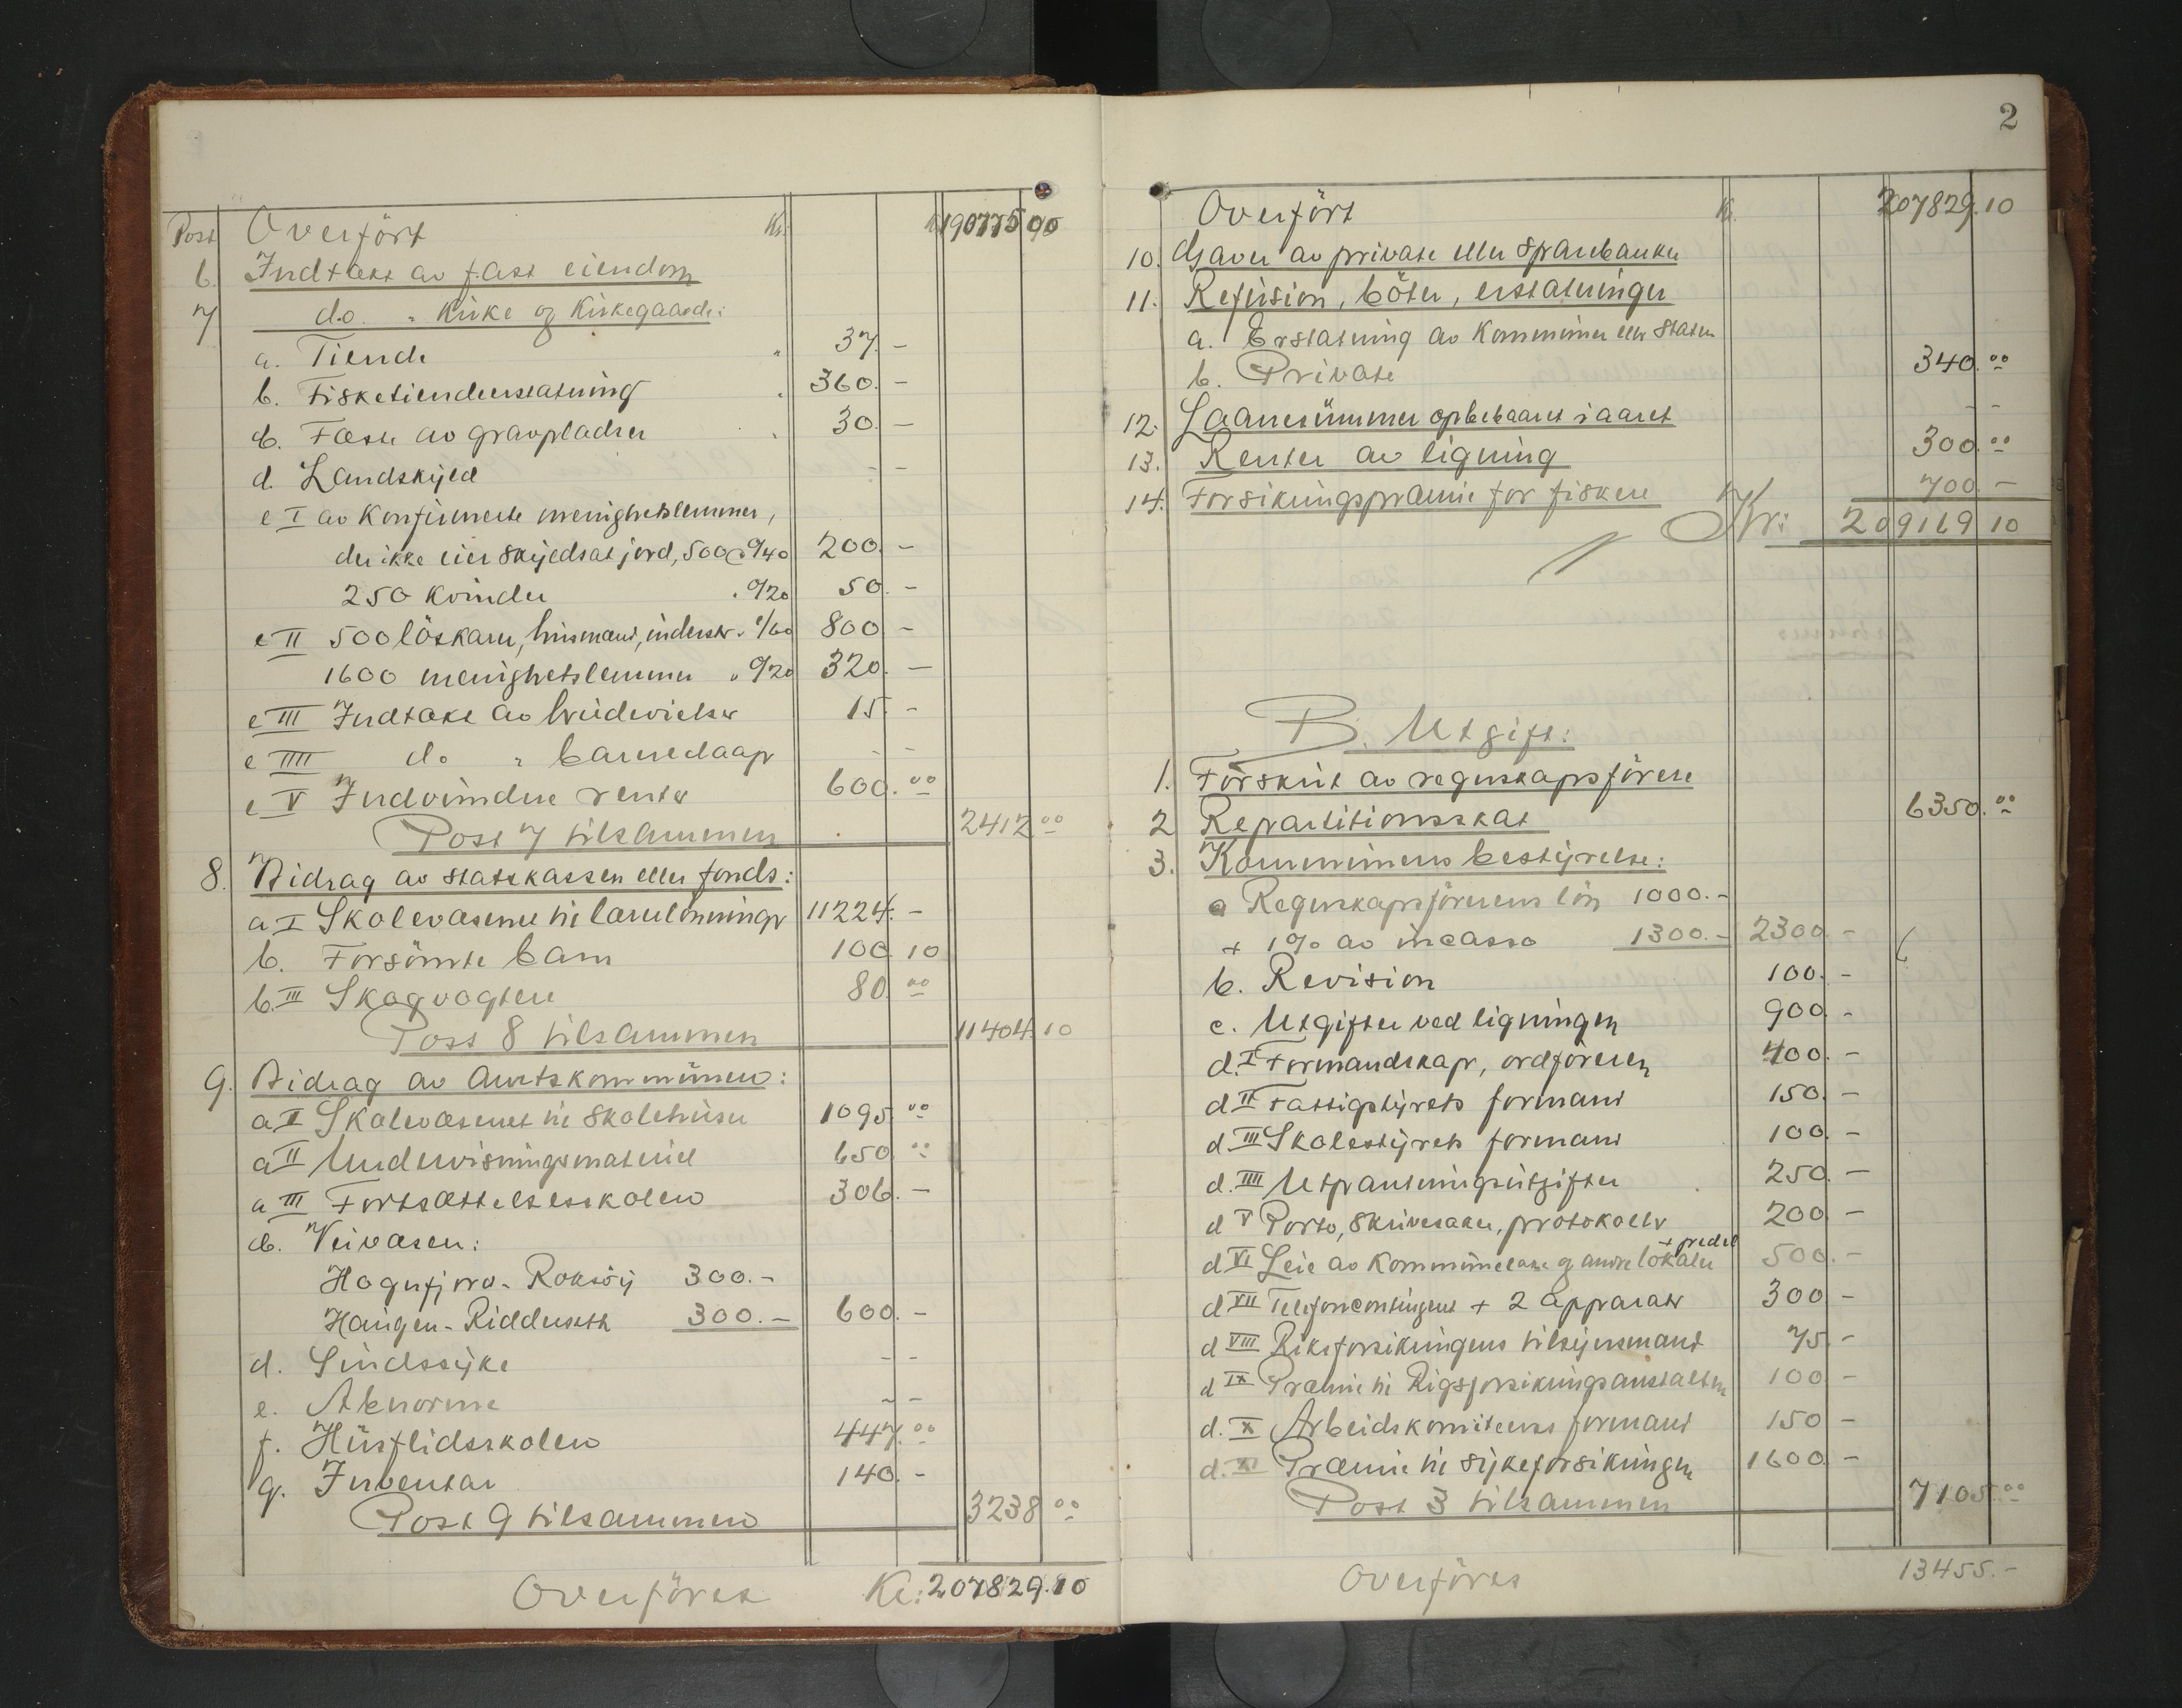 Post Overført Kr. 190775 00
6. Indtækt av fast eiendom
7 do. " Kirke og Kirkegaarde:
a. Tiende " 37. -
b. Fisketiendeerstatning " 360. -
c. Fæste av gravpladser " 30. -
d. Landskyld - -
e I av Konfirmerte menighetslemmer,
der ikke eier skyldsat jord, 500 à 0/40 200. -
250 Kvinder " 0/20 50. -
e II 500 löskarer, husmænd, inderster " 1/60 800 -
1600 menighetslemmer " 0/20 320. -
e III Indtækt av brudevielser 15. -
e IIII do " barnedaap - -
e V Indvundne renter 600. 00
Post 7 tilsammen 2412 00
8. Bidrag av statskassen eller fonds:
a I Skolevæsenet til lærerlønninger 11224. -
b. Forsömte barn 100. 10
b. III Skogvogtere 80 00
Post 8 tilsammen 11404. 10
9. Bidrag av Amtskommunen:
a I Skolevæsenet til skolehuse 1095. 00
a II Undervisningsmateriel 650 00
a III Fortsættelsesskolen 306. -
c. Veivæsen:
Hognfjord - Roksöy 300. -
Haugen - Ridderseth 300. - 600. -
d. Sindssyke - -
e. Abnorme - -
f. Husflidsskolen 447. 00
g. Inventar 140. -
Post 9 tilsammen 3238 00
Overföres Kr: 207829. 10
2
Overfört Kr. 207829. 10
10. Gaver av private eller Sparebanker
11. Refusion, böter, erstatninger
a. Erstatning av Kommuner eller Staten
b. Private 340. 00
12. Laanesummer opbebaaret i aaret - -
13. Renter av ligning 300. 00
14. Forsikringspræmie for fiskere 700. -
Kr: 209169 10
B. Utgift:
1. Forskut av regnskapsförere
2 Repartitionsskat 6350. 00
3. Kommunens bestyrelse:
a Regnskapsförerens lön 1000. -
+ 1% av incasso 1300. - 2300. -
b. Revision 100. -
c. Utgifter ved ligningen 900. -
d. I Formandskap, ordföreren 400. -
d II Fattigstyrets formand 150. -
d. III Skolestyrets formand 100. -
d. IIII Utpantningsutgifter 250. -
d V Porto, skrivesaker, protokoller 200. -
+ pedel
d VI Leie av Kommunelokale og andre lokaler 500. -
d VII Telefoncontingent + 2 apparater 300 -
d VIII Riksforsikringens tilsynsmand 75. -
d IX Præmie til Rigsforsikringsanstalten 100 -
d. X Arbeidskomiteens formand 150 -
d. XI Præmie til sykeforsikringen 1600 -
Post 3 tilsammen 7105. 00
Overföres 13455. -